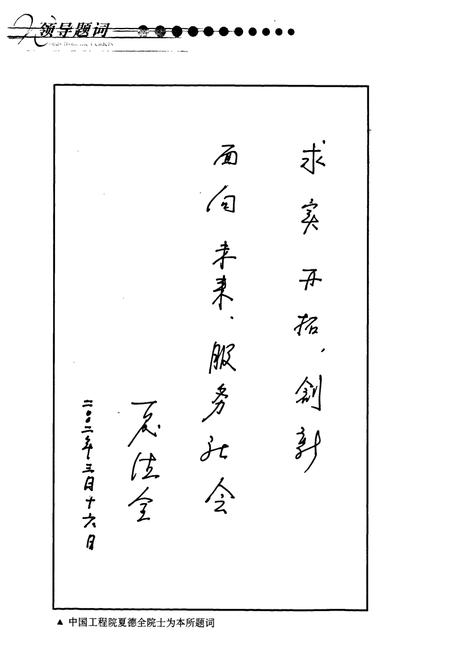 领导题词
求实开拓，创新
面向未来、服务社会
夏德全
二〇〇二年三月十六日
▲ 中国工程院夏德全院士为本所题词